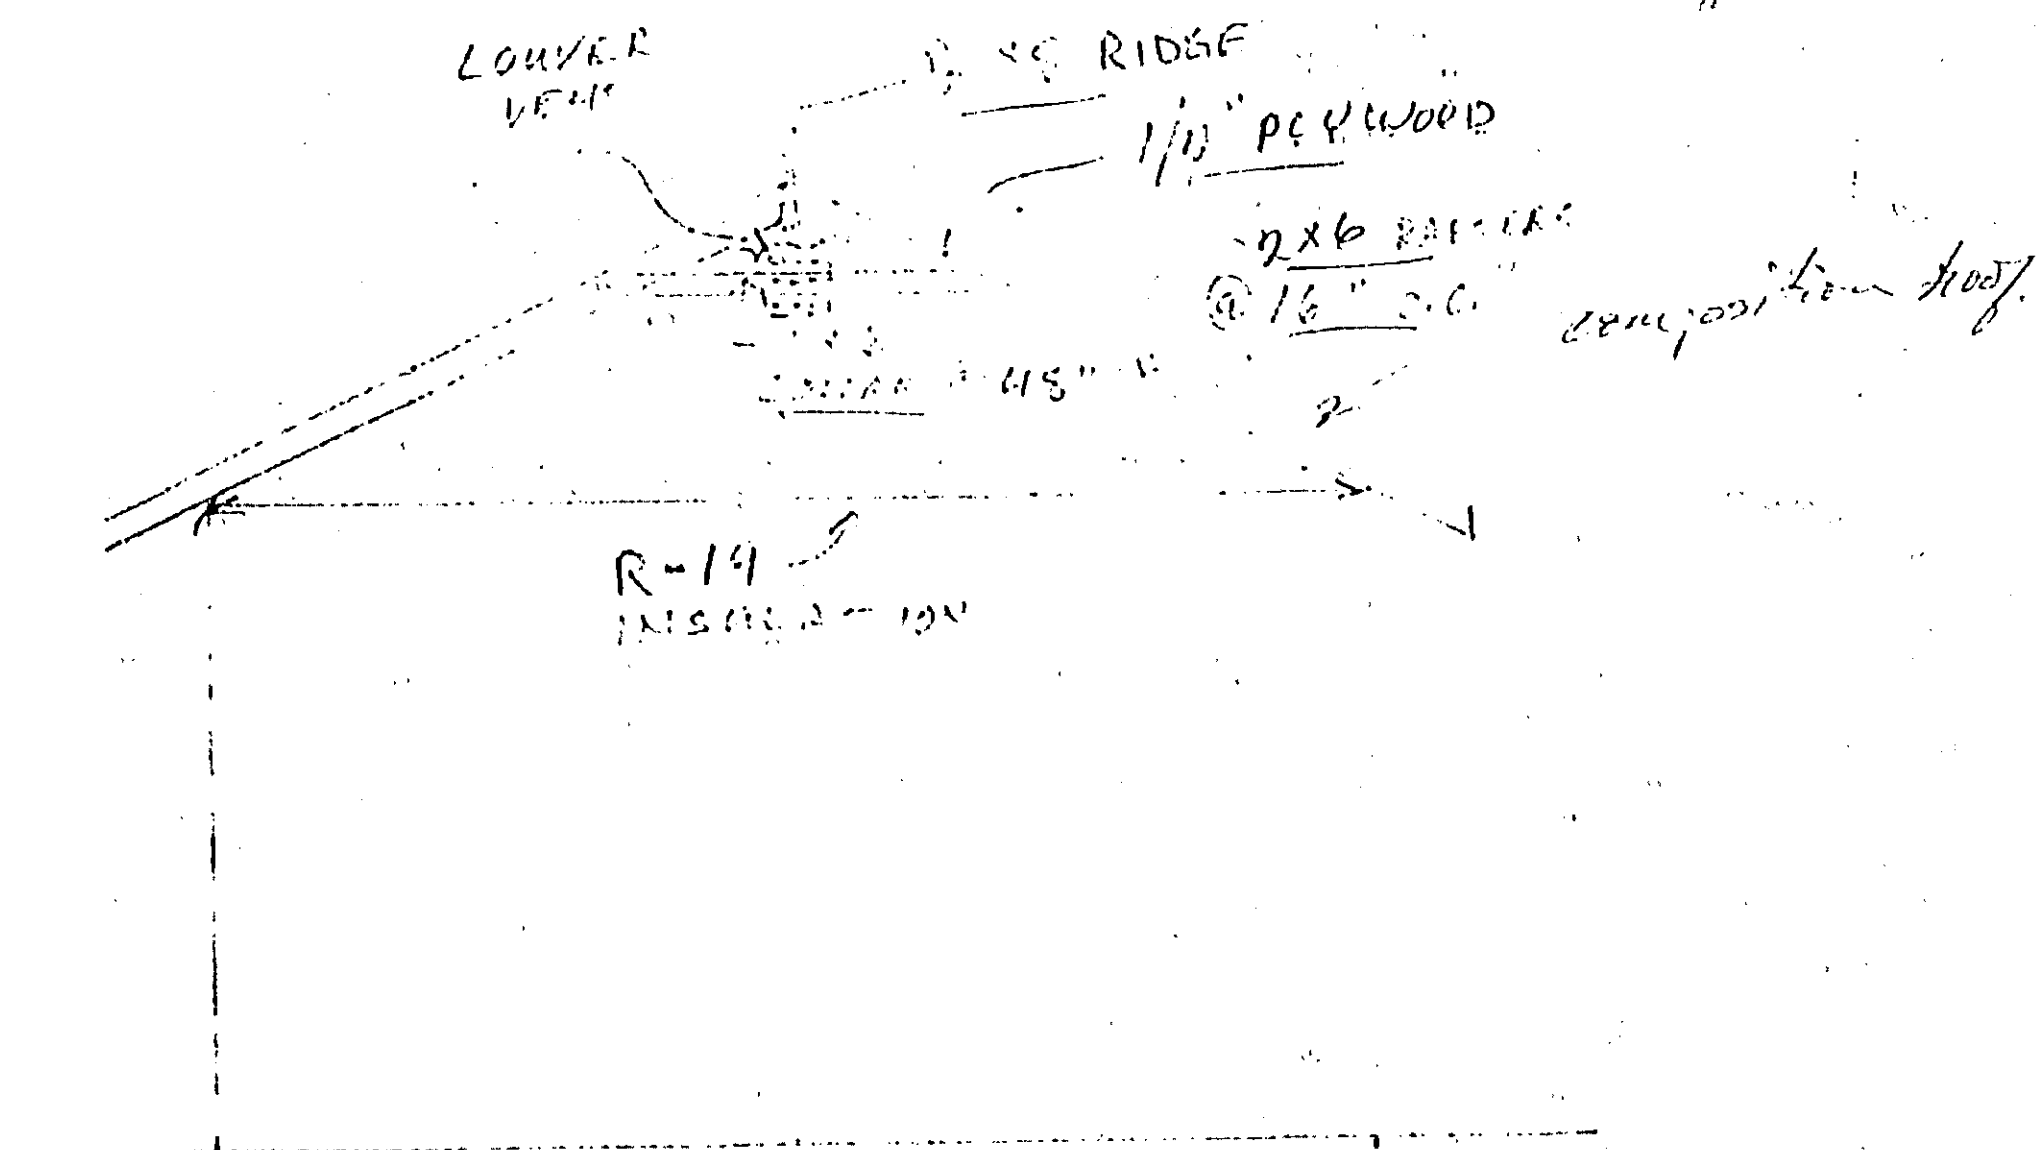 LOUVER
VENT
RIDGE
PLYWOOD
2x6 RAFTERS
@ 16" O.C.
composition roof.
48"
INSULATION